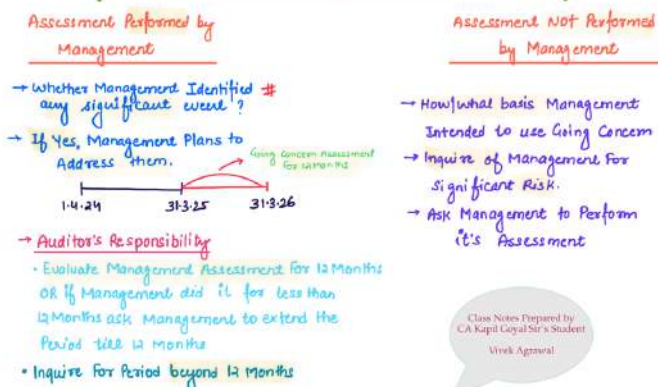 Assessment Performed by
Management
→ Whether Management Identified #
any significant event?
→ If Yes, Management Plans to
Address them.
Going Concern Assessment
For 12 Months
1.4.24 31.3.25 31.3.26
→ Auditor's Responsibility
• Evaluate Management Assessment For 12 Months
OR if Management did it for less than
12 Months ask Management to extend the
Period till 12 Months
• Inquire For Period beyond 12 Months
Assessment NOT Performed
by Management
→ How/what basis Management
Intended to use Going Concern
→ Inquire of Management For
Significant Risk.
→ Ask Management to Perform
it's Assessment
Class Notes Prepared by
CA Kapil Goyal Sir's Student
Vivek Agrawal